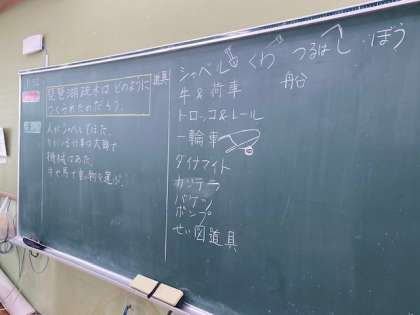 琵琶湖疏水は どのように
つくられたのだろう。
人がシャベルでほった。
機械はあった。
牛や馬で重い物を運ぶ。
道具
シャベル くわ つるはし ぼう
船
牛&荷車
トロッコ&レール
一輪車
ダイナマイト
カンテラ
バケツ
ポンプ
せい図道具